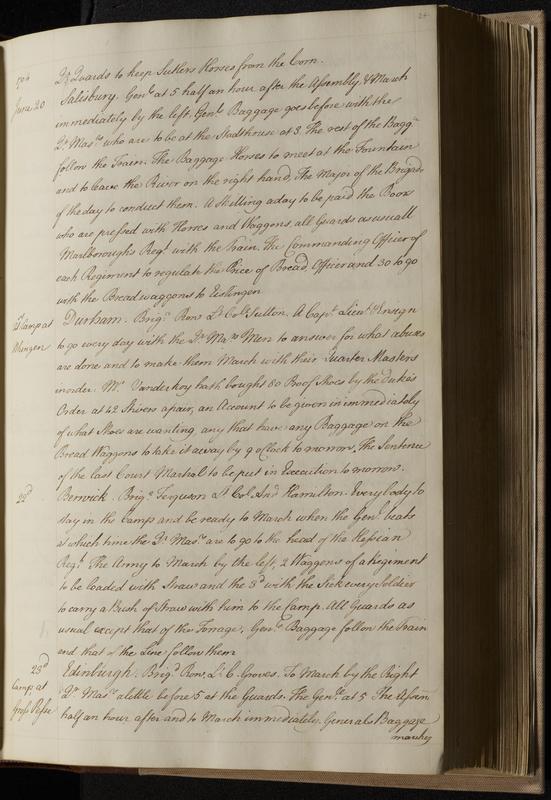 24
1704
Qr. Guards to keep Sutlers Horses from the Corn.
June 20 Salisbury. Genl. at 5 half an hour after the Assembly, & March
immediately by the left, Genls. Baggage goes before with the
Qr. Masrs. who are to be at the Stadthouse at 3. The rest of the Bagg:
follow the Train. The Baggage Horses to meet at the Fountain
and to leave the River on the right hand, The Major of the Brigade
of the day to conduct them. A Shilling a day to be paid the Boors
who are pressed with Horses and Waggons, all Guards as usuall
Marlboroughs Regt. with the Train. The Commanding Officer of
each Regiment to regulate the Price of Bread. Officer and 30 to go
with the Bread waggons to Eislingen
21st Camp at Durham. Brigr. Row Lt. Col. Sutton. A Capt. Lieut. & Ensign
to go every day with the Qr. Masrs. Men to answer for what abuses
are done and to make them March with their Quarter Masters
in order. Mr. Vanderkoy hath bought 80 Pr. of Shoes by the Dukes
Order at 42 Stivers a pair, an Account to be given in immediately
of what Shoes are wanting, any that have any Baggage on the
Bread Waggons to take it away by 9 o'Clock to morrow, The Sentence
of the last Court Martial to be put in Execution to morrow.
22d. Berwick. Brigr. Ferguson Lt. Col. And. Hamilton. Every body to
stay in the Camp and be ready to March when the Genl. beats
at which time the Qr. Masrs. are to go to the head of the Hessian
Regt. The Army to March by the left, 2 Waggons of a Regiment
to be loaded with Straw and the 3d. with the Sick every Soldier
to carry a Bush of Straw with him to the Camp. All Guards as
usual except that of the Forrage, Genls. Baggage follow the Train
and that of the Line follow them
23d Camp at Edinburgh. Brigr. Row, Lt. C. Groves. To March by the Right
Qr. Masrs. a little before 5 at the Guards, The Genl. at 5 The Assem:
half an hour after and to March immediately. Generals Baggage
marches